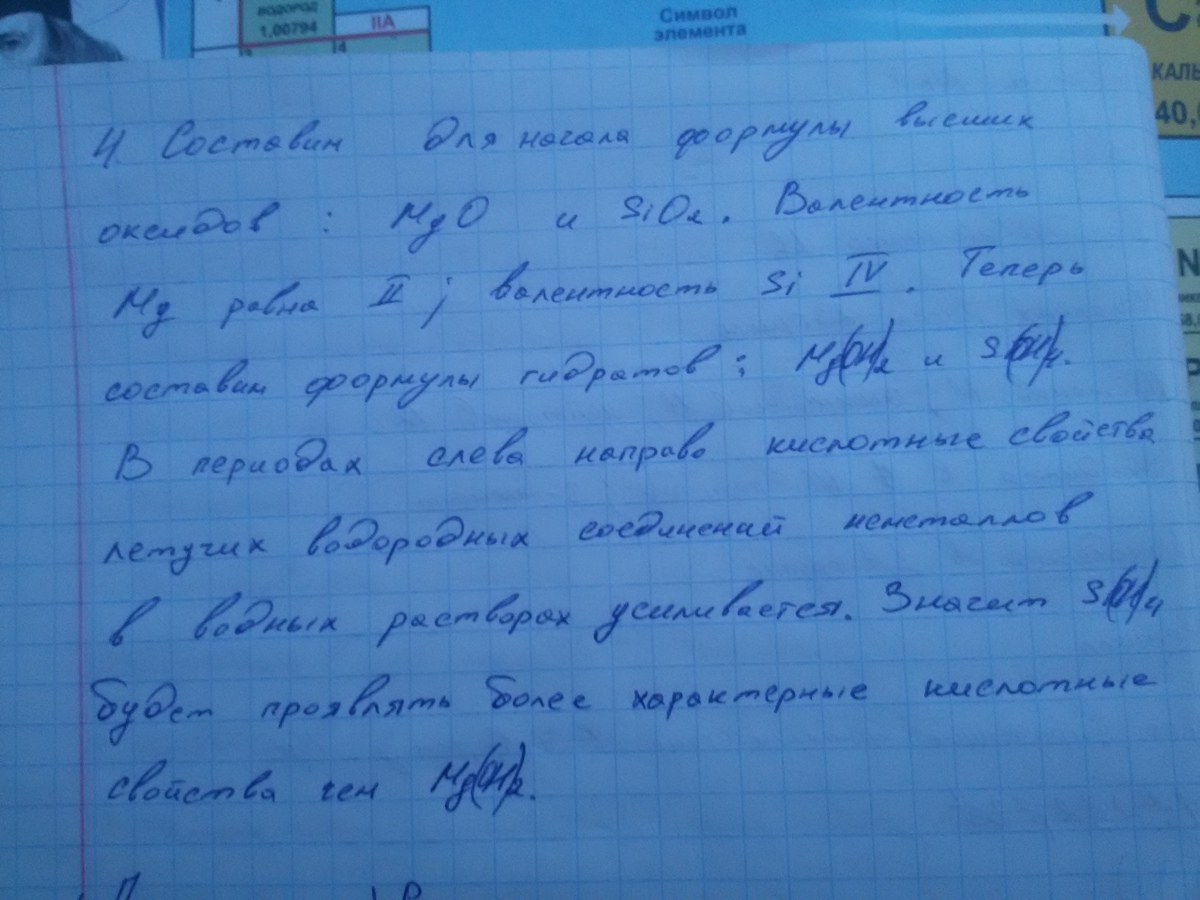 ВОДОРОД
1,00794
IIA
4
Символ
элемента
КАЛЬ
40,
4. Составим для начала формулы высших
оксидов : MgO и SiO₂. Валентность
Mg равна II ; валентность Si IV. Теперь
составим формулы гидратов : Mg(OH)₂ и Si(OH)₄.
В периодах слева направо кислотные свойства
летучих водородных соединений неметаллов
в водных растворах усиливается. Значит Si(OH)₄
будет проявлять более характерные кислотные
свойства чем Mg(OH)₂.